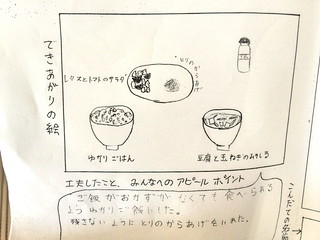 できあがりの絵
レタスとトマトのサラダ
とりのからあげ
ゆかりごはん
豆腐と玉ねぎのみそしる
工夫したこと、みんなへのアピールポイント
ご飯がおかずがなくても食べられる
ようゆかりご飯にした。
残さないようにとりのからあげを入れた。
こんだての名前